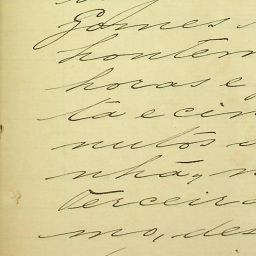 Gomes
hontem
horas e
ta e cin
nutos d
nhã, n
terceiro
mo, des